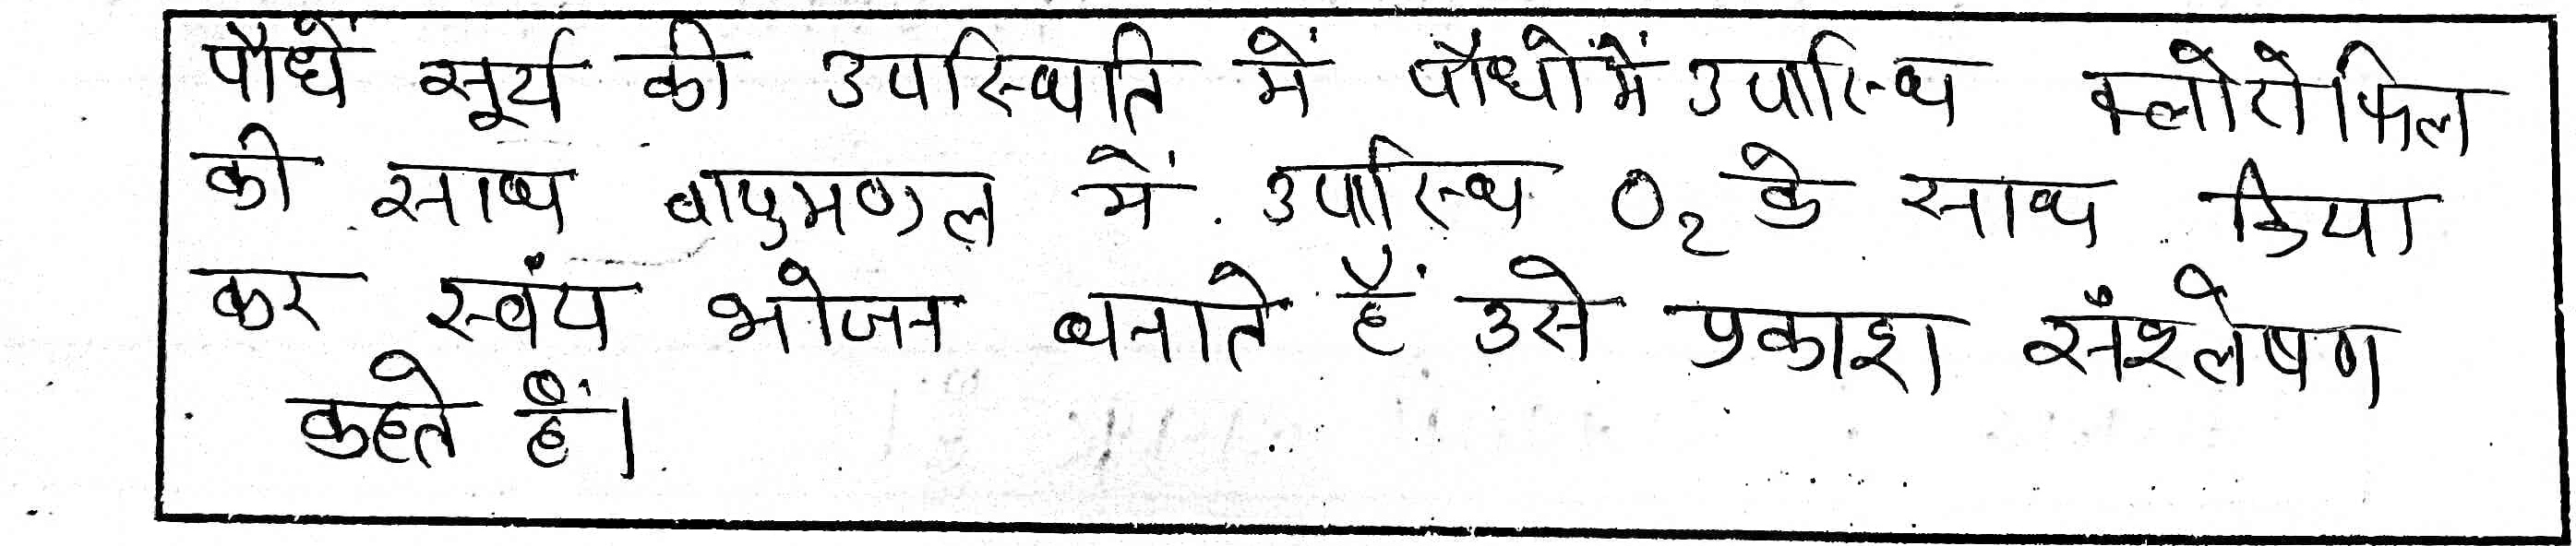 पौधें सूर्य की उपस्थिति में पौधों में उपस्थि क्लोरोफिल
की साथ वायुमण्डल में उपस्थि O₂ के साथ क्रिया
कर स्वंय भोजन बनाते हैं उसे प्रकाश संश्लेषण
कहते हैं।